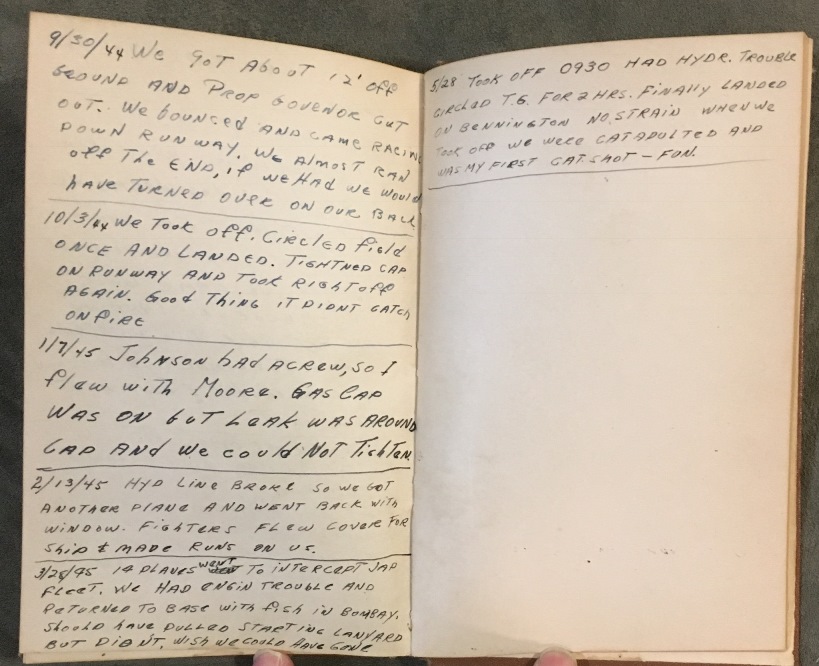 9/30/44 We got About 12' off
ground AND Prop Govenor cut
out. We bounced AND came RACING
DOWN RUNWAY. We Almost RAN
off The END, if we HAd we would
have TURNED OVER ON OUR BACK
10/3/44 We Took off. Circled field
ONCE AND LANDED. TIGHTNED CAP
ON RUNWAY AND Took RIGHT off
AGAIN. Good Thing IT DIDNT CATCH
ON FIRE
1/7/45 Johnson had A CREW, SO I
flew with Moore. GAS CAP
WAS ON but LEAK WAS AROUND
CAP AND we could NOT TIGHTEN.
2/13/45 HYD LINE BROKE SO WE GOT
ANOTHER PLANE AND WENT BACK with
WINDOW. FIGHTERS FLEW COVER FOR
Ship & MADE RUNS ON US.
14 PLANES WENT TO INTERCEPT JAP
FLEET. WE HAD ENGIN TROUBLE AND
RETURNED TO BASE with fish IN BOMBAY.
Should have PULLED STARTING LANYARD
BUT DIDN'T. WISH WE COULD HAVE GONE
5/28 TOOK OFF 0930 HAD HYDR. TROUBLE
CIRCLED T.G. FOR 2 HRS. FINALLY LANDED
ON BENNINGTON NO STRAIN WHEN WE
TOOK OFF WE WERE CATAPULTED AND
WAS MY FIRST CATSHOT – FUN.